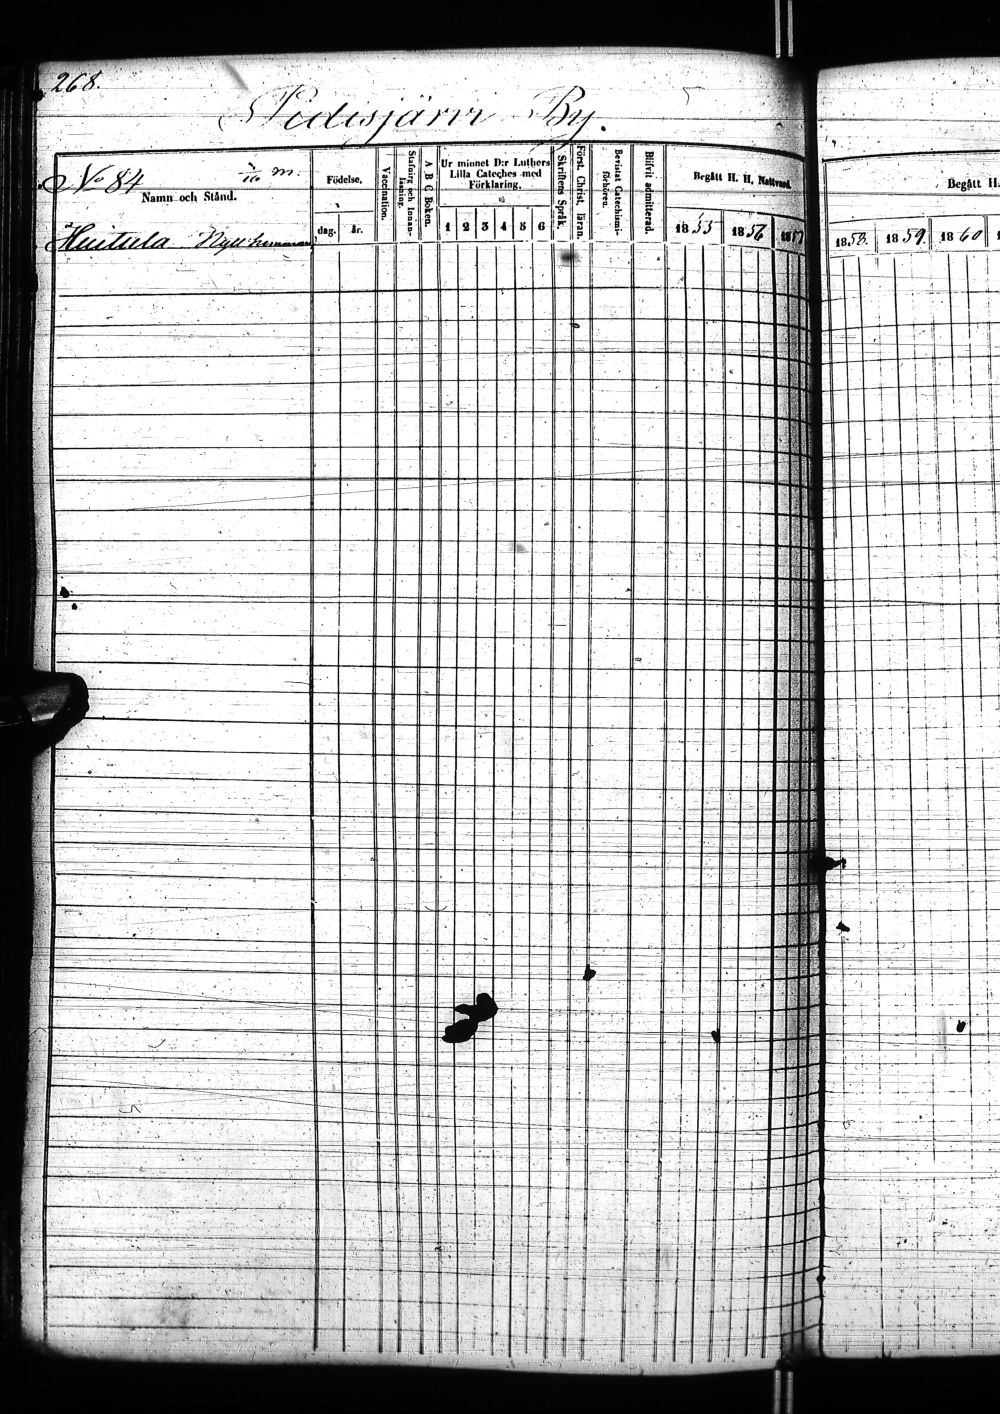 268.
Pudisjärvi By.
No 84 1/16 m.
Namn och Stånd.
Födelse.
dag. år.
Vaccination.
Stafning och Innan-
läsning.
A B C Boken.
Ur minnet D:r Luthers
Lilla Cateches med
Förklaring.
1 2 3 4 5 6
Skriftens Språk.
Först. Christ. läran.
Bevistat Catechismi-
förhören.
Blifvit admitterad.
Begått H. H. Nattvard.
1855 1856 1857
Huitula Nytt hemman
Begått H.
1858. 1859. 1860